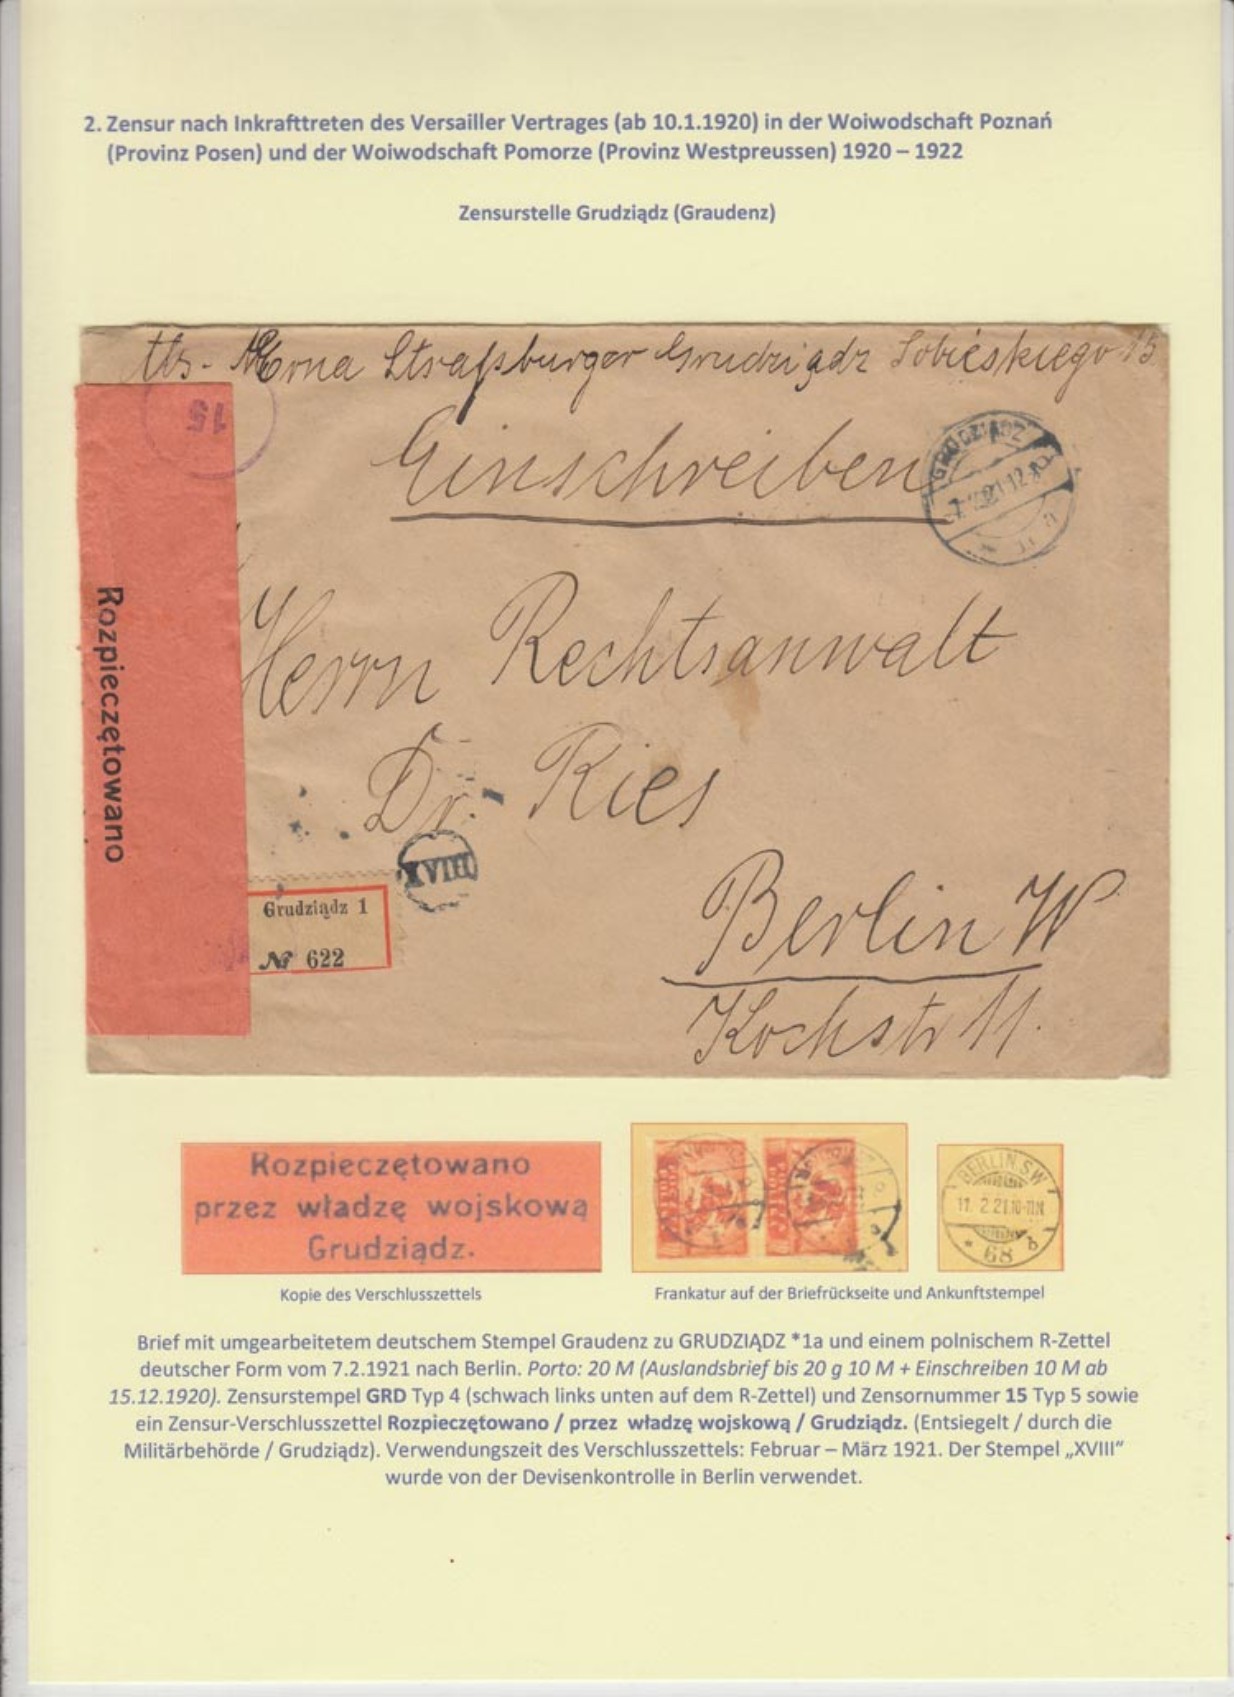 2. Zensur nach Inkrafttreten des Versailler Vertrages (ab 10.1.1920) in der Woiwodschaft Poznań
(Provinz Posen) und der Woiwodschaft Pomorze (Provinz Westpreussen) 1920 – 1922
Zensurstelle Grudziądz (Graudenz)
Straßburger Grudziądz Sobieskiego 15
15
Einschreiben
GRUDZIĄDZ
Rozpieczętowano
Herrn Rechtsanwalt
Dr. Ries
XVIII
Grudziądz 1
№ 622
Berlin W
Kochstr 11.
Rozpieczętowano
przez władzę wojskową
Grudziądz.
BERLIN.SW
11. 2.21.10-11N
* 68 b
Kopie des Verschlusszettels
Frankatur auf der Briefrückseite und Ankunftstempel
Brief mit umgearbeitetem deutschem Stempel Graudenz zu GRUDZIĄDZ *1a und einem polnischem R-Zettel
deutscher Form vom 7.2.1921 nach Berlin. Porto: 20 M (Auslandsbrief bis 20 g 10 M + Einschreiben 10 M ab
15.12.1920). Zensurstempel GRD Typ 4 (schwach links unten auf dem R-Zettel) und Zensornummer 15 Typ 5 sowie
ein Zensur-Verschlusszettel Rozpieczętowano / przez władzę wojskową / Grudziądz. (Entsiegelt / durch die
Militärbehörde / Grudziądz). Verwendungszeit des Verschlusszettels: Februar – März 1921. Der Stempel „XVIII“
wurde von der Devisenkontrolle in Berlin verwendet.